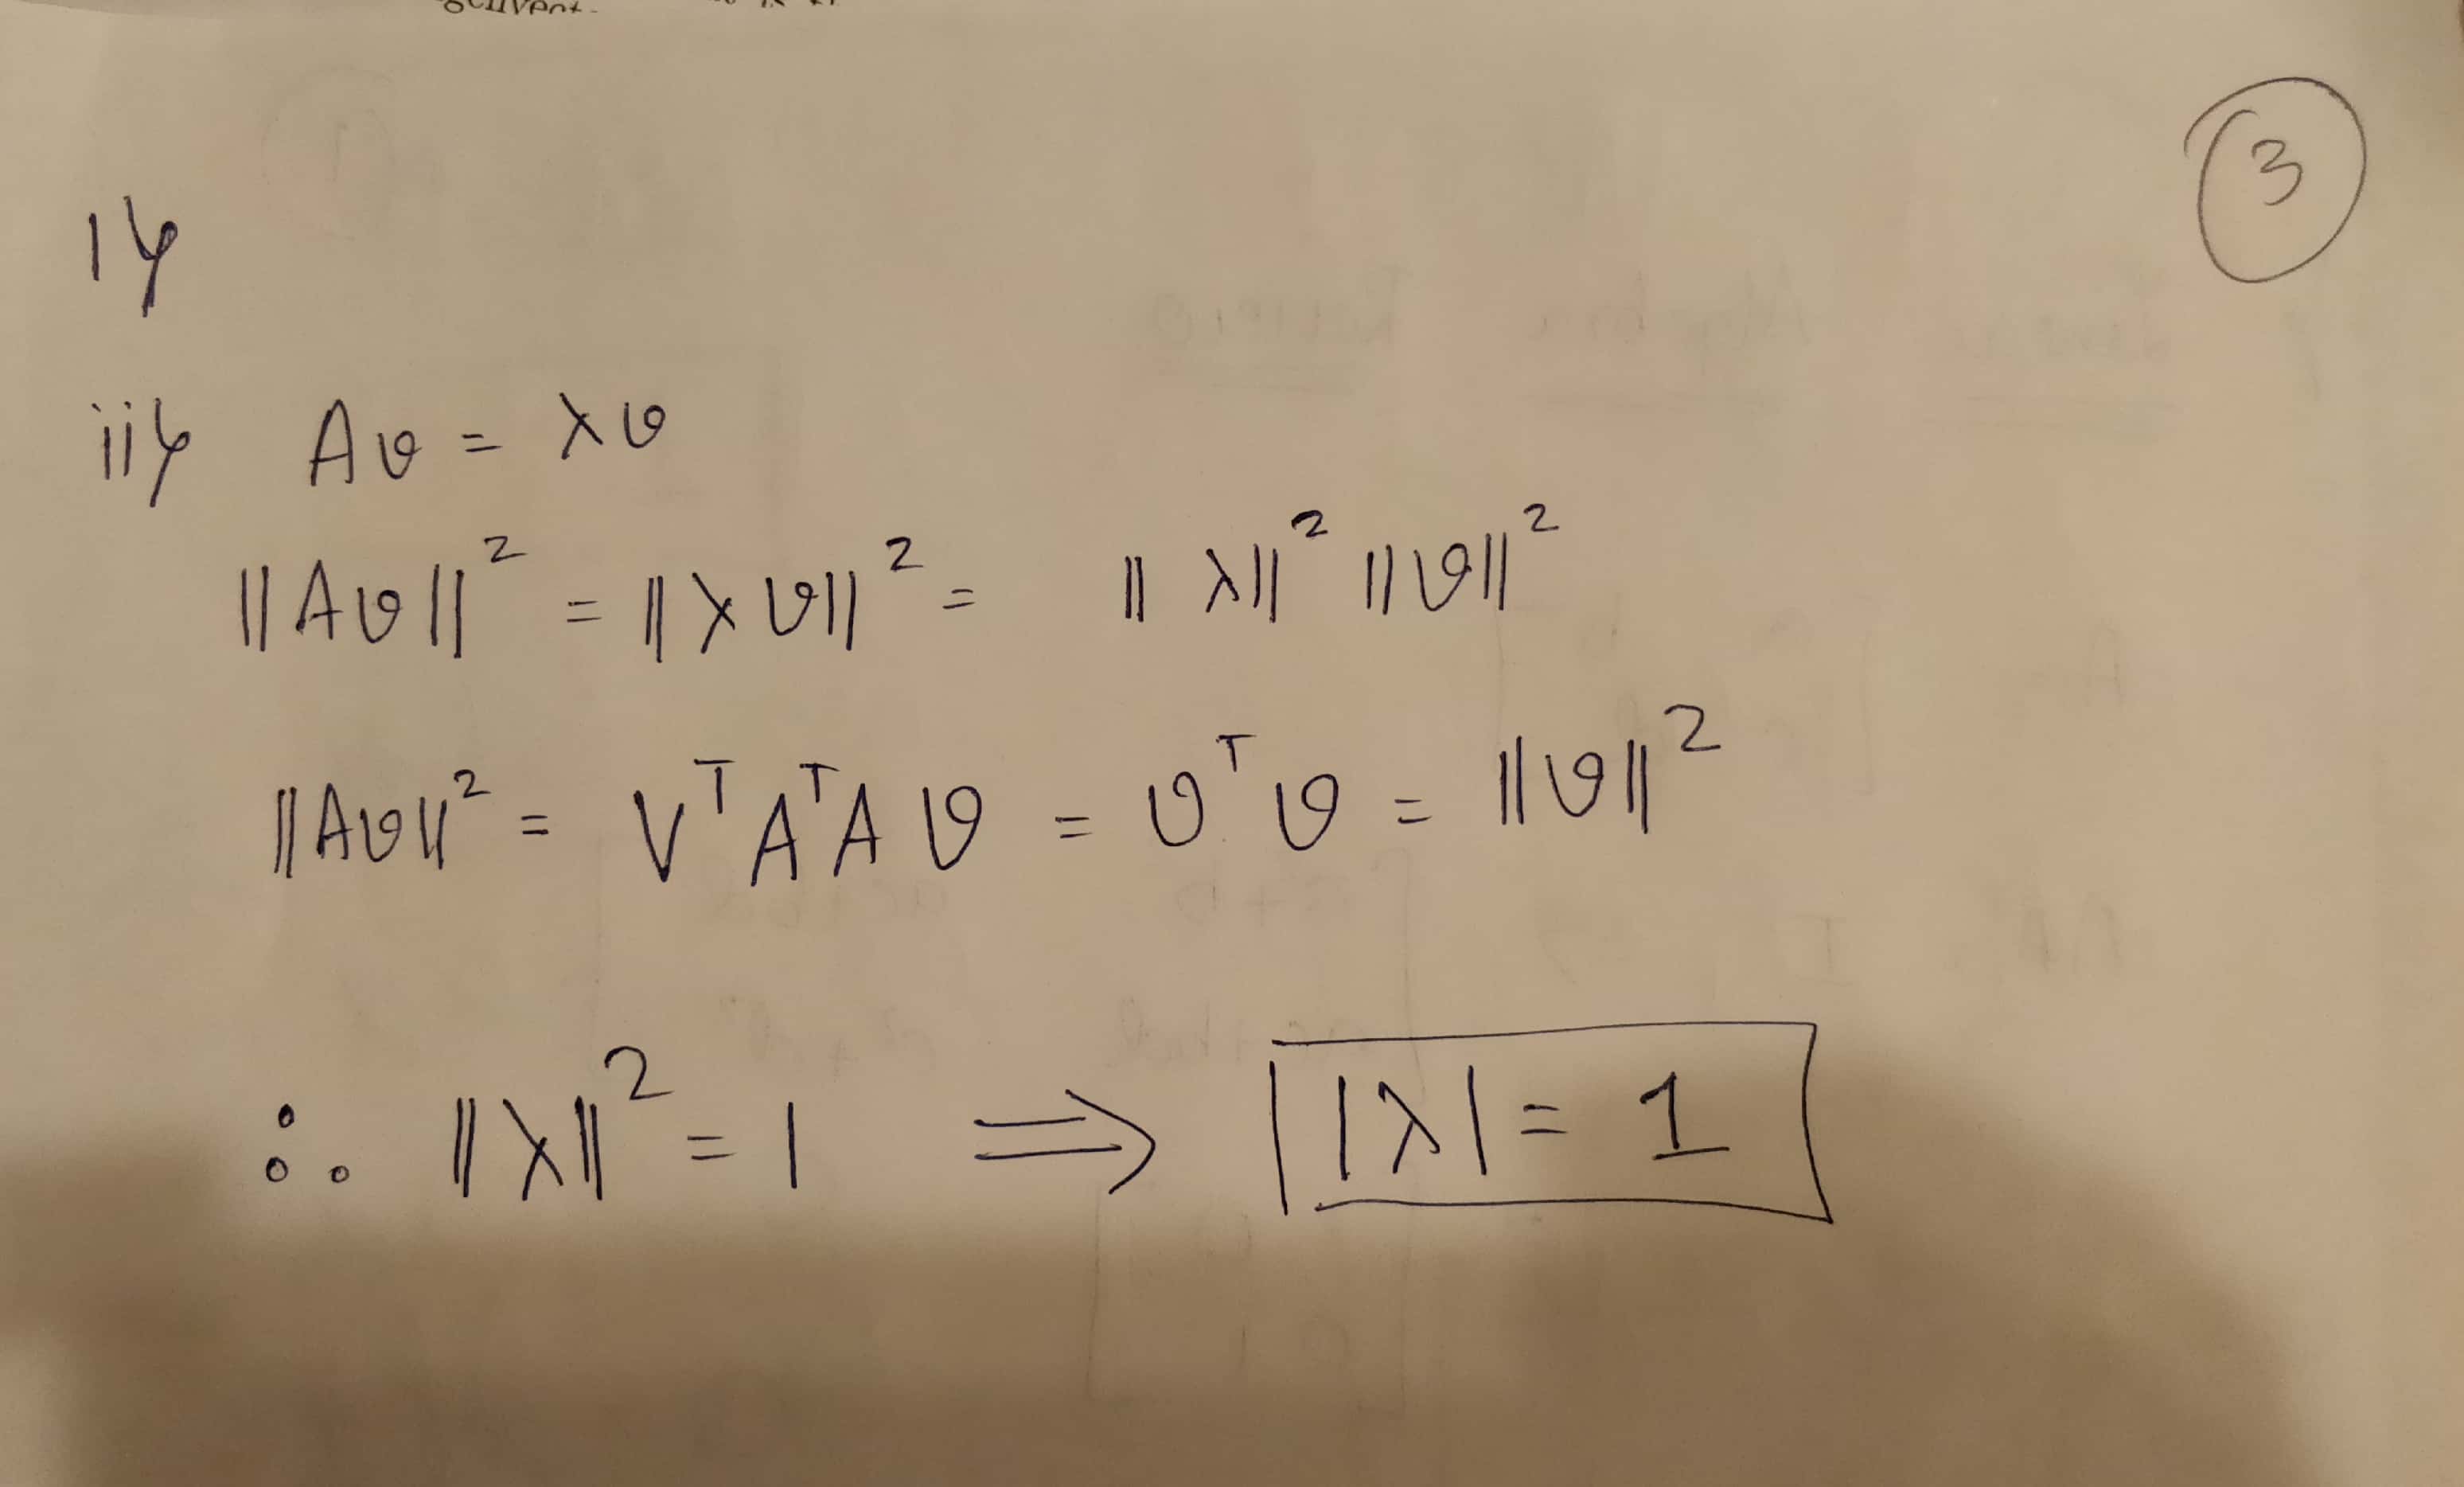 3
1)
ii) Av = λv
||Av||² = ||λv||² = ||λ||² ||v||²
||Av||² = VᵀAᵀAv = vᵀv = ||v||²
∴ ||λ||² = 1 ⟹ |λ| = 1